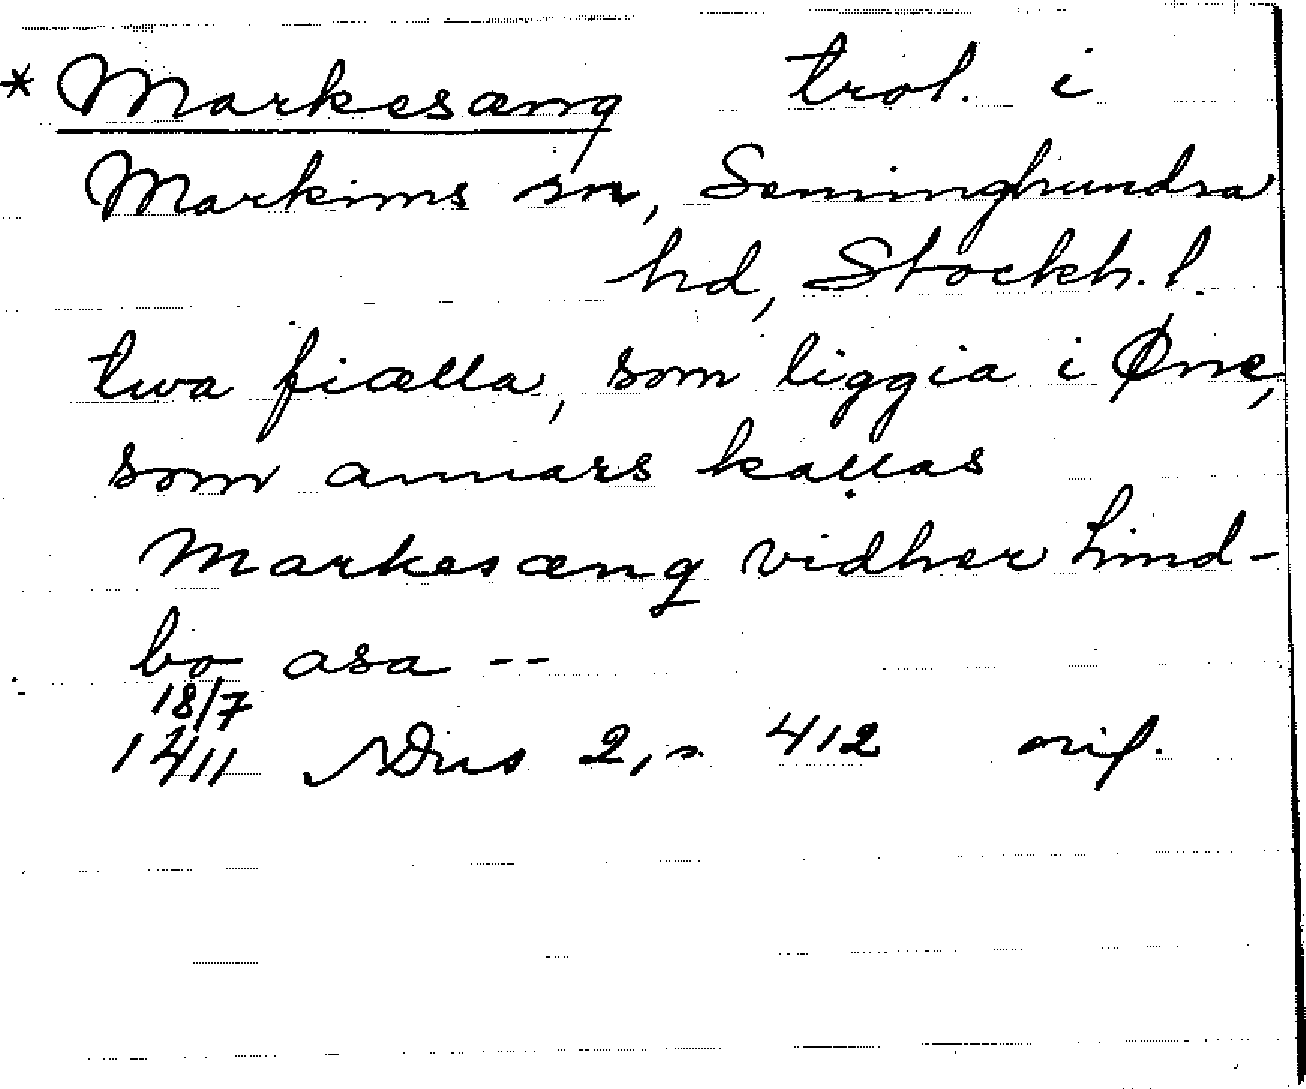 * Markesæng trol. i
Markims sn, Seminghundra
hd, Stockh. l.
twa fiælla, som liggia i Øne,
som annars kallas
Markesæng vidher Lind-
bo asa --
18/7
1411 SDns 2, s 412 orig.